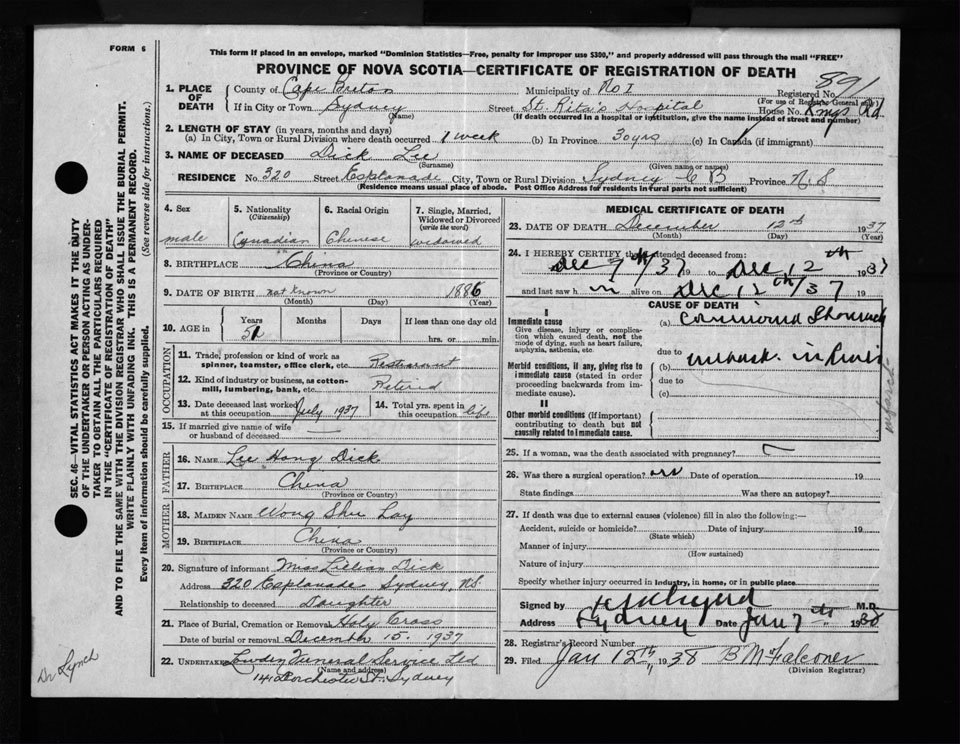 FORM 6
This form if placed in an envelope, marked "Dominion Statistics—Free, penalty for improper use $300," and properly addressed will pass through the mail "FREE"
PROVINCE OF NOVA SCOTIA—CERTIFICATE OF REGISTRATION OF DEATH
891
1. PLACE OF DEATH County of Cape Breton Municipality of No 1 Registered No.
(For use of Registrar General only)
If in City or Town Sydney Street St. Rita's Hospital House No. Kings Rd.
(Name) (If death occurred in a hospital or institution, give the name instead of street and number)
2. LENGTH OF STAY (in years, months and days)
(a) In City, Town or Rural Division where death occurred 1 week (b) In Province 30 yrs (c) In Canada (if immigrant)
3. NAME OF DECEASED Dick Lee
(Surname) (Given name or names)
RESIDENCE No. 320 Street Esplanade City, Town or Rural Division Sydney C B Province N S
(Residence means usual place of abode. Post Office Address for residents in rural parts not sufficient)
4. Sex male
5. Nationality (Citizenship) Canadian
6. Racial Origin Chinese
7. Single, Married, Widowed or Divorced (write the word) widowed
8. BIRTHPLACE China
(Province or Country)
9. DATE OF BIRTH not known 1886
(Month) (Day) (Year)
10. AGE in Years 51 Months Days If less than one day old
hrs. or min.
OCCUPATION
11. Trade, profession or kind of work as spinner, teamster, office clerk, etc. Resturant
12. Kind of industry or business, as cotton-mill, lumbering, bank, etc. Retired
13. Date deceased last worked at this occupation July 1937
14. Total yrs. spent in this occupation life
15. If married give name of wife or husband of deceased
FATHER
16. NAME Lee Hong Dick
17. BIRTHPLACE China
(Province or Country)
MOTHER
18. MAIDEN NAME Wong Shee Lay
19. BIRTHPLACE China
(Province or Country)
20. Signature of informant Miss Lillian Dick
Address 320 Esplanade Sydney, NS.
Relationship to deceased Daughter
21. Place of Burial, Cremation or Removal Holy Cross
Date of burial or removal 15. 1937
22. UNDERTAKER Funeral Service Ltd
(Name and address)
Dorchester St. Sydney
MEDICAL CERTIFICATE OF DEATH
23. DATE OF DEATH December 12th 1937
(Month) (Day) (Year)
24. I HEREBY CERTIFY that I attended deceased from:
Dec 7th/37 19 to Dec 12th 1937
and last saw h im alive on Dec 12th/37 19
CAUSE OF DEATH
I
Immediate cause
Give disease, injury or complication which caused death, not the mode of dying, such as heart failure, asphyxia, asthenia, etc.
(a)
due to
Morbid conditions, if any, giving rise to immediate cause (stated in order proceeding backwards from immediate cause).
(b)
due to
(c)
II
Other morbid conditions (if important) contributing to death but not causally related to immediate cause.
25. If a woman, was the death associated with pregnancy?
26. Was there a surgical operation? Date of operation 19
State findings Was there an autopsy?
27. If death was due to external causes (violence) fill in also the following:—
Accident, suicide or homicide? Date of injury 19
(State which)
Manner of injury
(How sustained)
Nature of injury
Specify whether injury occurred in industry, in home, or in public place
Signed by M.D.
Address Sydney Date Jan 7th 1938
28. Registrar's Record Number
29. Filed Jan 12th, 1938 B M Falconer
(Division Registrar)
SEC. 46—VITAL STATISTICS ACT MAKES IT THE DUTY
OF THE UNDERTAKER OR PERSON ACTING AS UNDER-
TAKER TO OBTAIN ALL THE PARTICULARS REQUIRED
IN THE "CERTIFICATE OF REGISTRATION OF DEATH"
AND TO FILE THE SAME WITH THE DIVISION REGISTRAR WHO SHALL ISSUE THE BURIAL PERMIT.
WRITE PLAINLY WITH UNFADING INK. THIS IS A PERMANENT RECORD.
Every item of information should be carefully supplied. (See reverse side for instructions.)
Dr Lynch